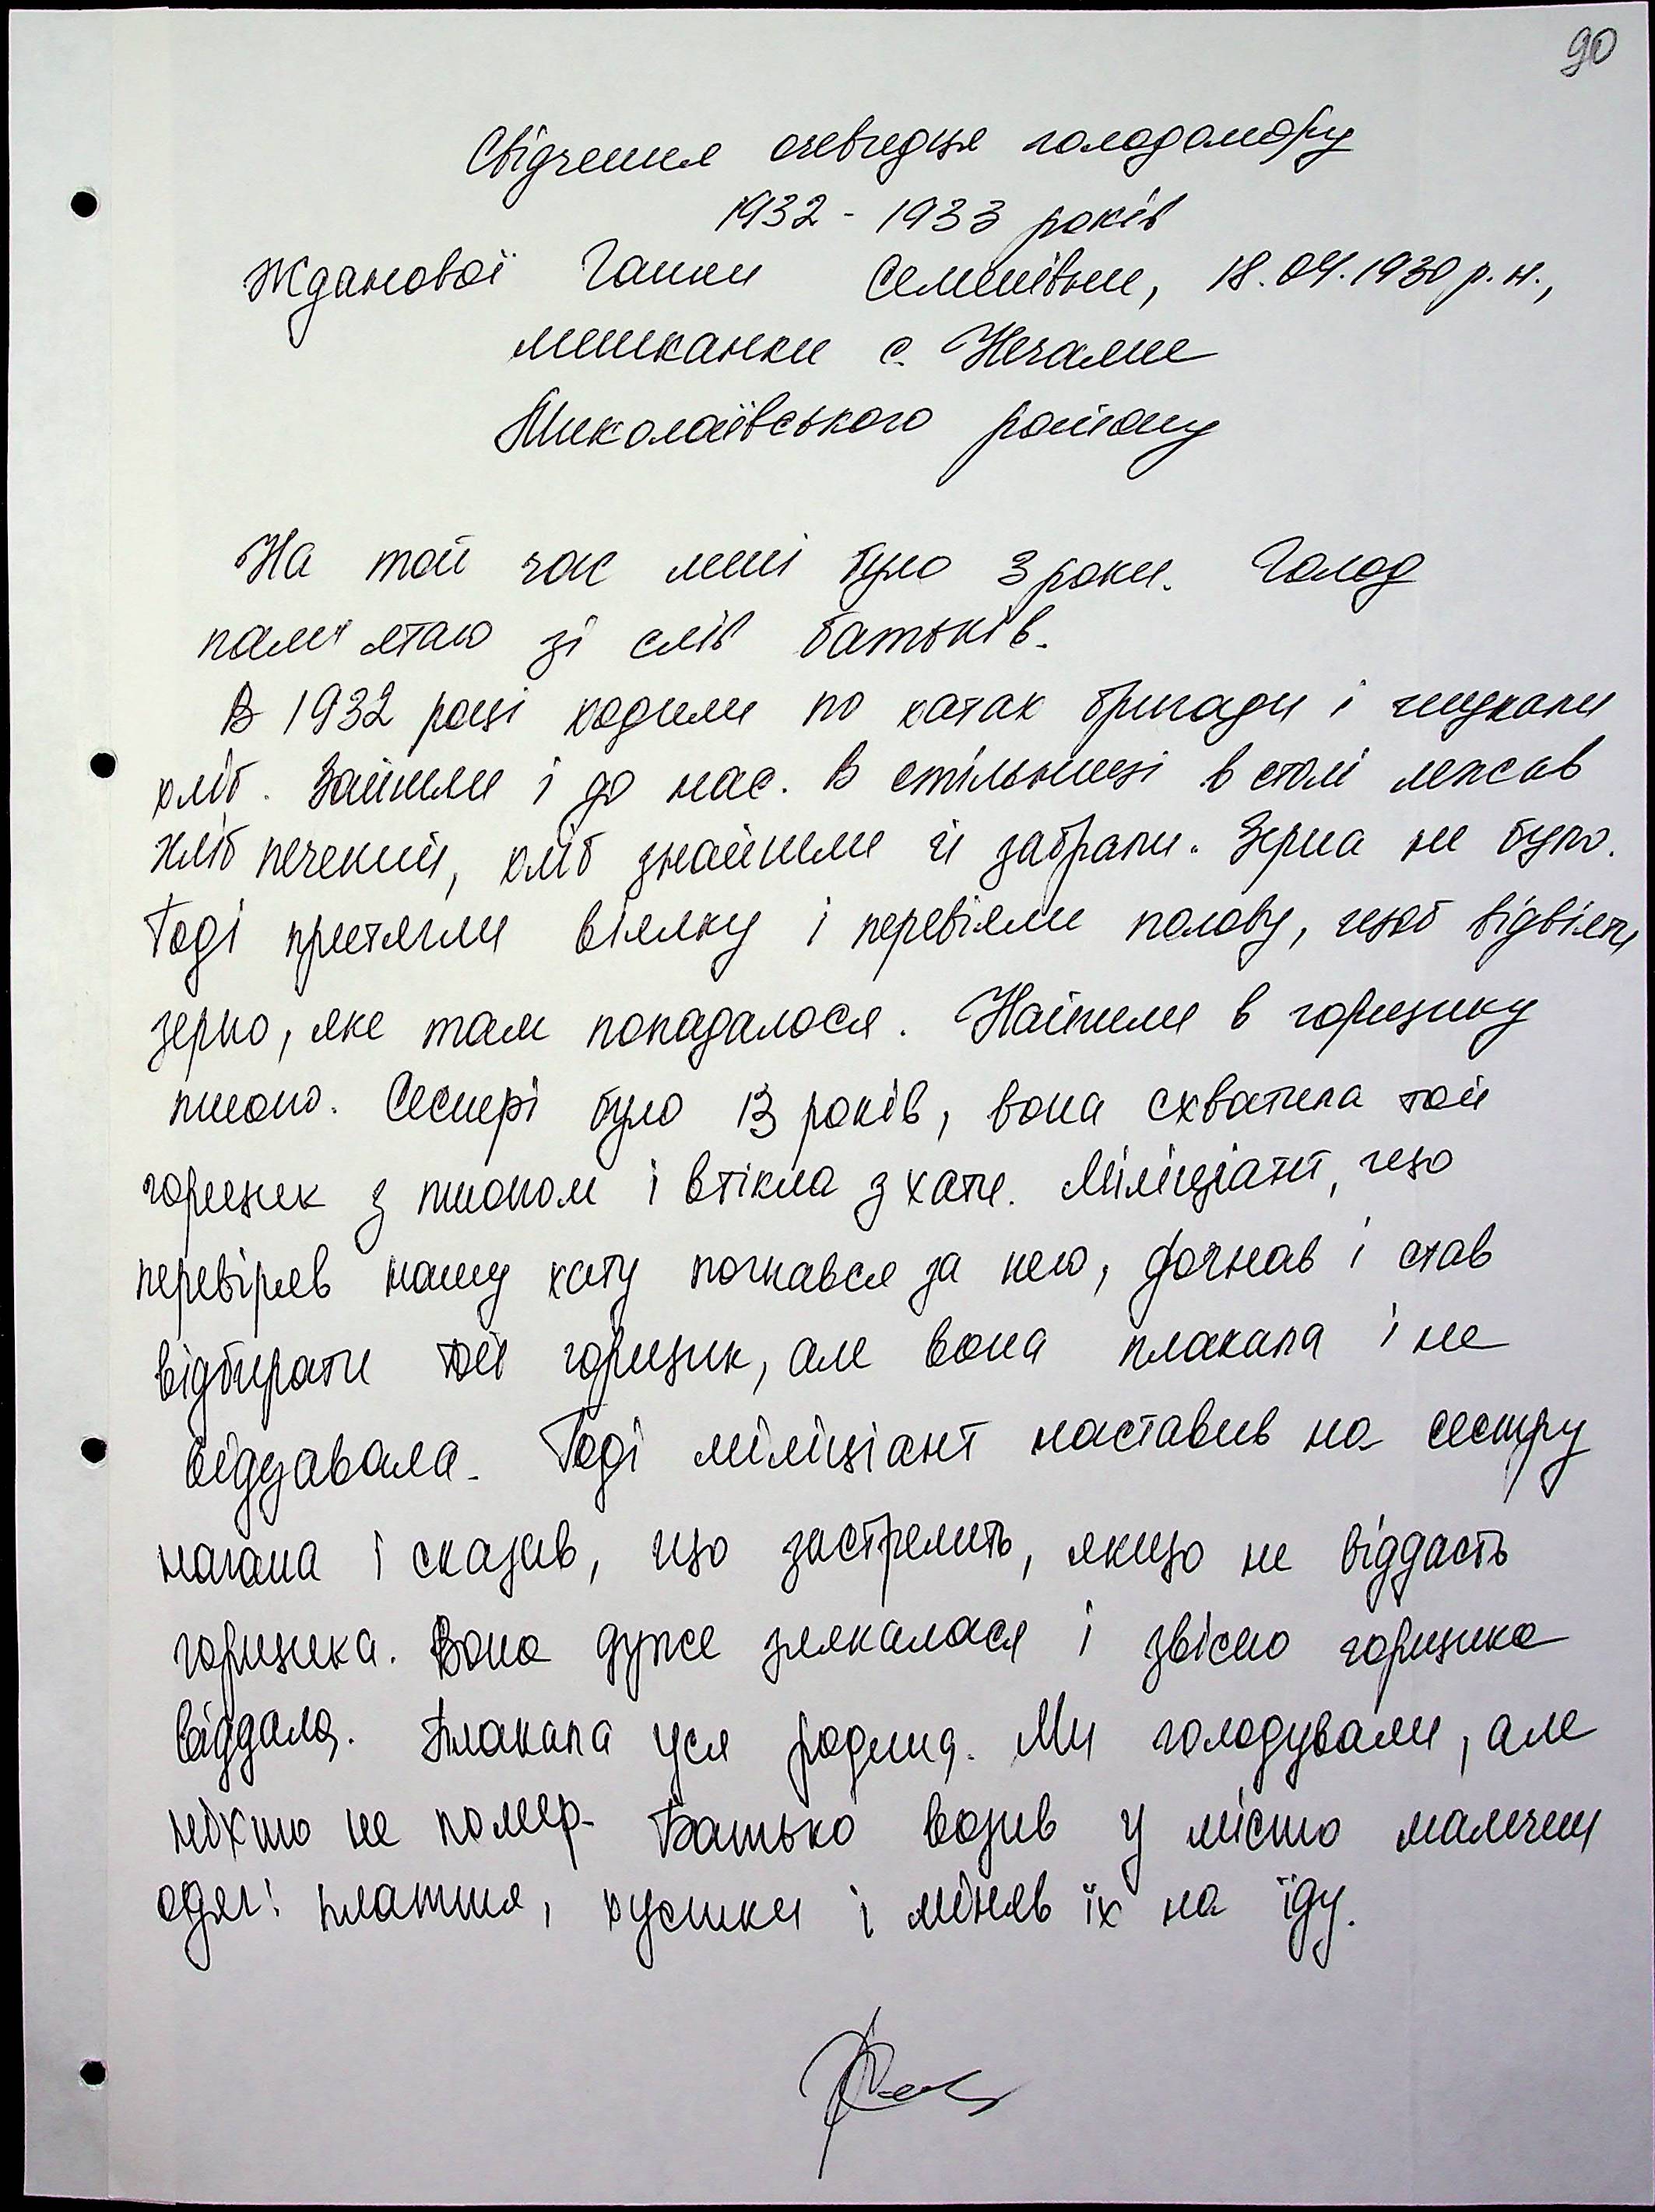 90
Свідчення очевидця голодомору
1932 - 1933 років
Жданової Ганни Семенівни, 18.04.1930 р.н.,
мешканки с. Нечаяне
Миколаївського району
На той час мені було 3 роки. Голод
пам'ятаю зі слів батьків.
В 1932 році ходили по хатах бригади і шукали
хліб. Зайшли і до нас. В стільниці в столі лежав
хліб печений, хліб знайшли й забрали. Зерна не було.
Тоді притягли віялку і перевіяли полову, щоб відвіяти
зерно, яке там попадалося. Найшли в горщику
пшоно. Сестрі було 13 років, вона схватила той
горщик з пшоном і втікла з хати. Міліціант, що
перевіряв нашу хату погнався за нею, догнав і став
відбирати той горщик, але вона плакала і не
віддавала. Тоді міліціант наставив на сестру
нагана і сказав, що застрелить, якщо не віддасть
горщика. Вона дуже злякалася і звісно горщика
віддала. Плакала уся родина. Ми голодували, але
ніхто не помер. Батько возив у місто мамин
одяг: плаття, хустки і міняв їх на їду.